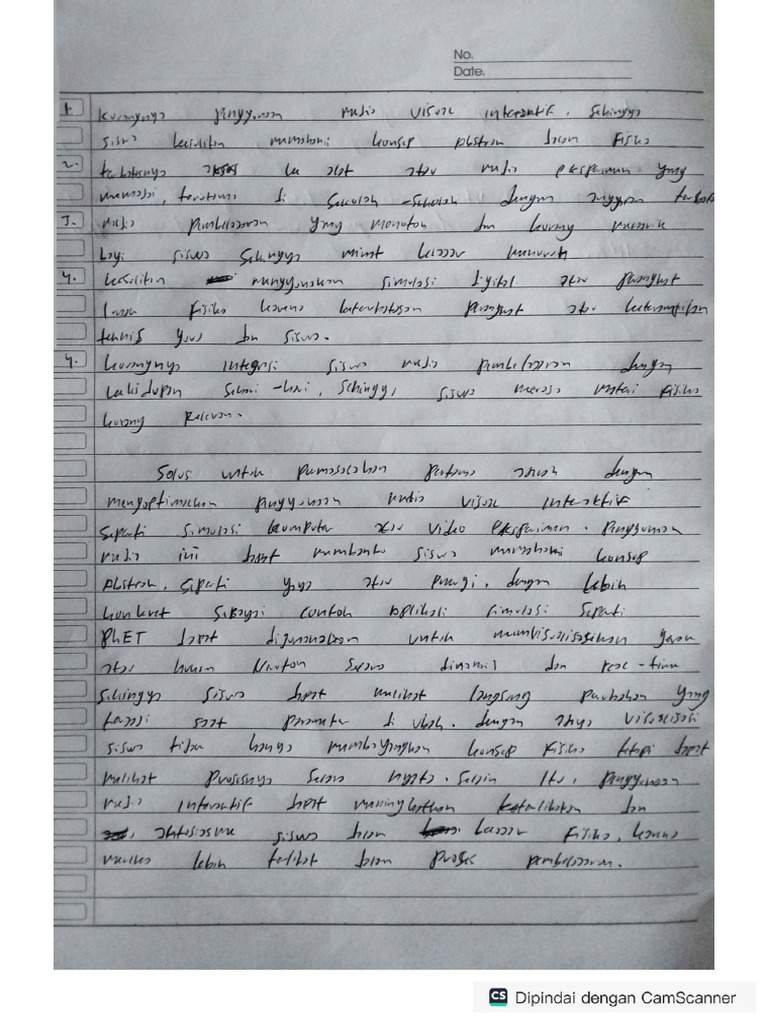 No.
Date.
1. kurangnya penggunaan media visual interaktif, sehingga
siswa kesulitan memahami konsep abstrak dalam fisika
2. terbatasnya akses ke alat atau media eksperimen yang
memadai, terutama di sekolah-sekolah dengan anggaran terbatas
3. media pembelajaran yang monoton dan kurang menarik
bagi siswa sehingga minat belajar menurun
4. kesulitan menggunakan simulasi digital atau perangkat
lunak fisika karena keterbatasan perangkat atau keterampilan
teknis guru dan siswa.
4. kurangnya integrasi siswa media pembelajaran dengan
kehidupan sehari-hari, sehingga siswa merasa materi fisika
kurang relevan.
Solusi untuk permasalahan pertama adalah dengan
mengoptimalkan penggunaan media visual interaktif
seperti simulasi komputer atau video eksperimen. Penggunaan
media ini dapat membantu siswa memahami konsep
abstrak, seperti gaya atau energi, dengan lebih
konkret sebagai contoh aplikasi simulasi seperti
PhET dapat digunakan untuk memvisualisasikan gerak
atau hukum Newton secara dinamis dan real-time
sehingga siswa dapat melihat langsung perubahan yang
terjadi saat parameter di ubah. dengan adanya visualisasi
siswa tidak hanya membayangkan konsep fisika tetapi dapat
melihat prosesnya secara nyata. selain itu, penggunaan
media interaktif dapat meningkatkan keterlibatan dan
antusiasme siswa dalam belajar fisika, karena
mereka lebih terlibat dalam proses pembelajaran.
CS Dipindai dengan CamScanner